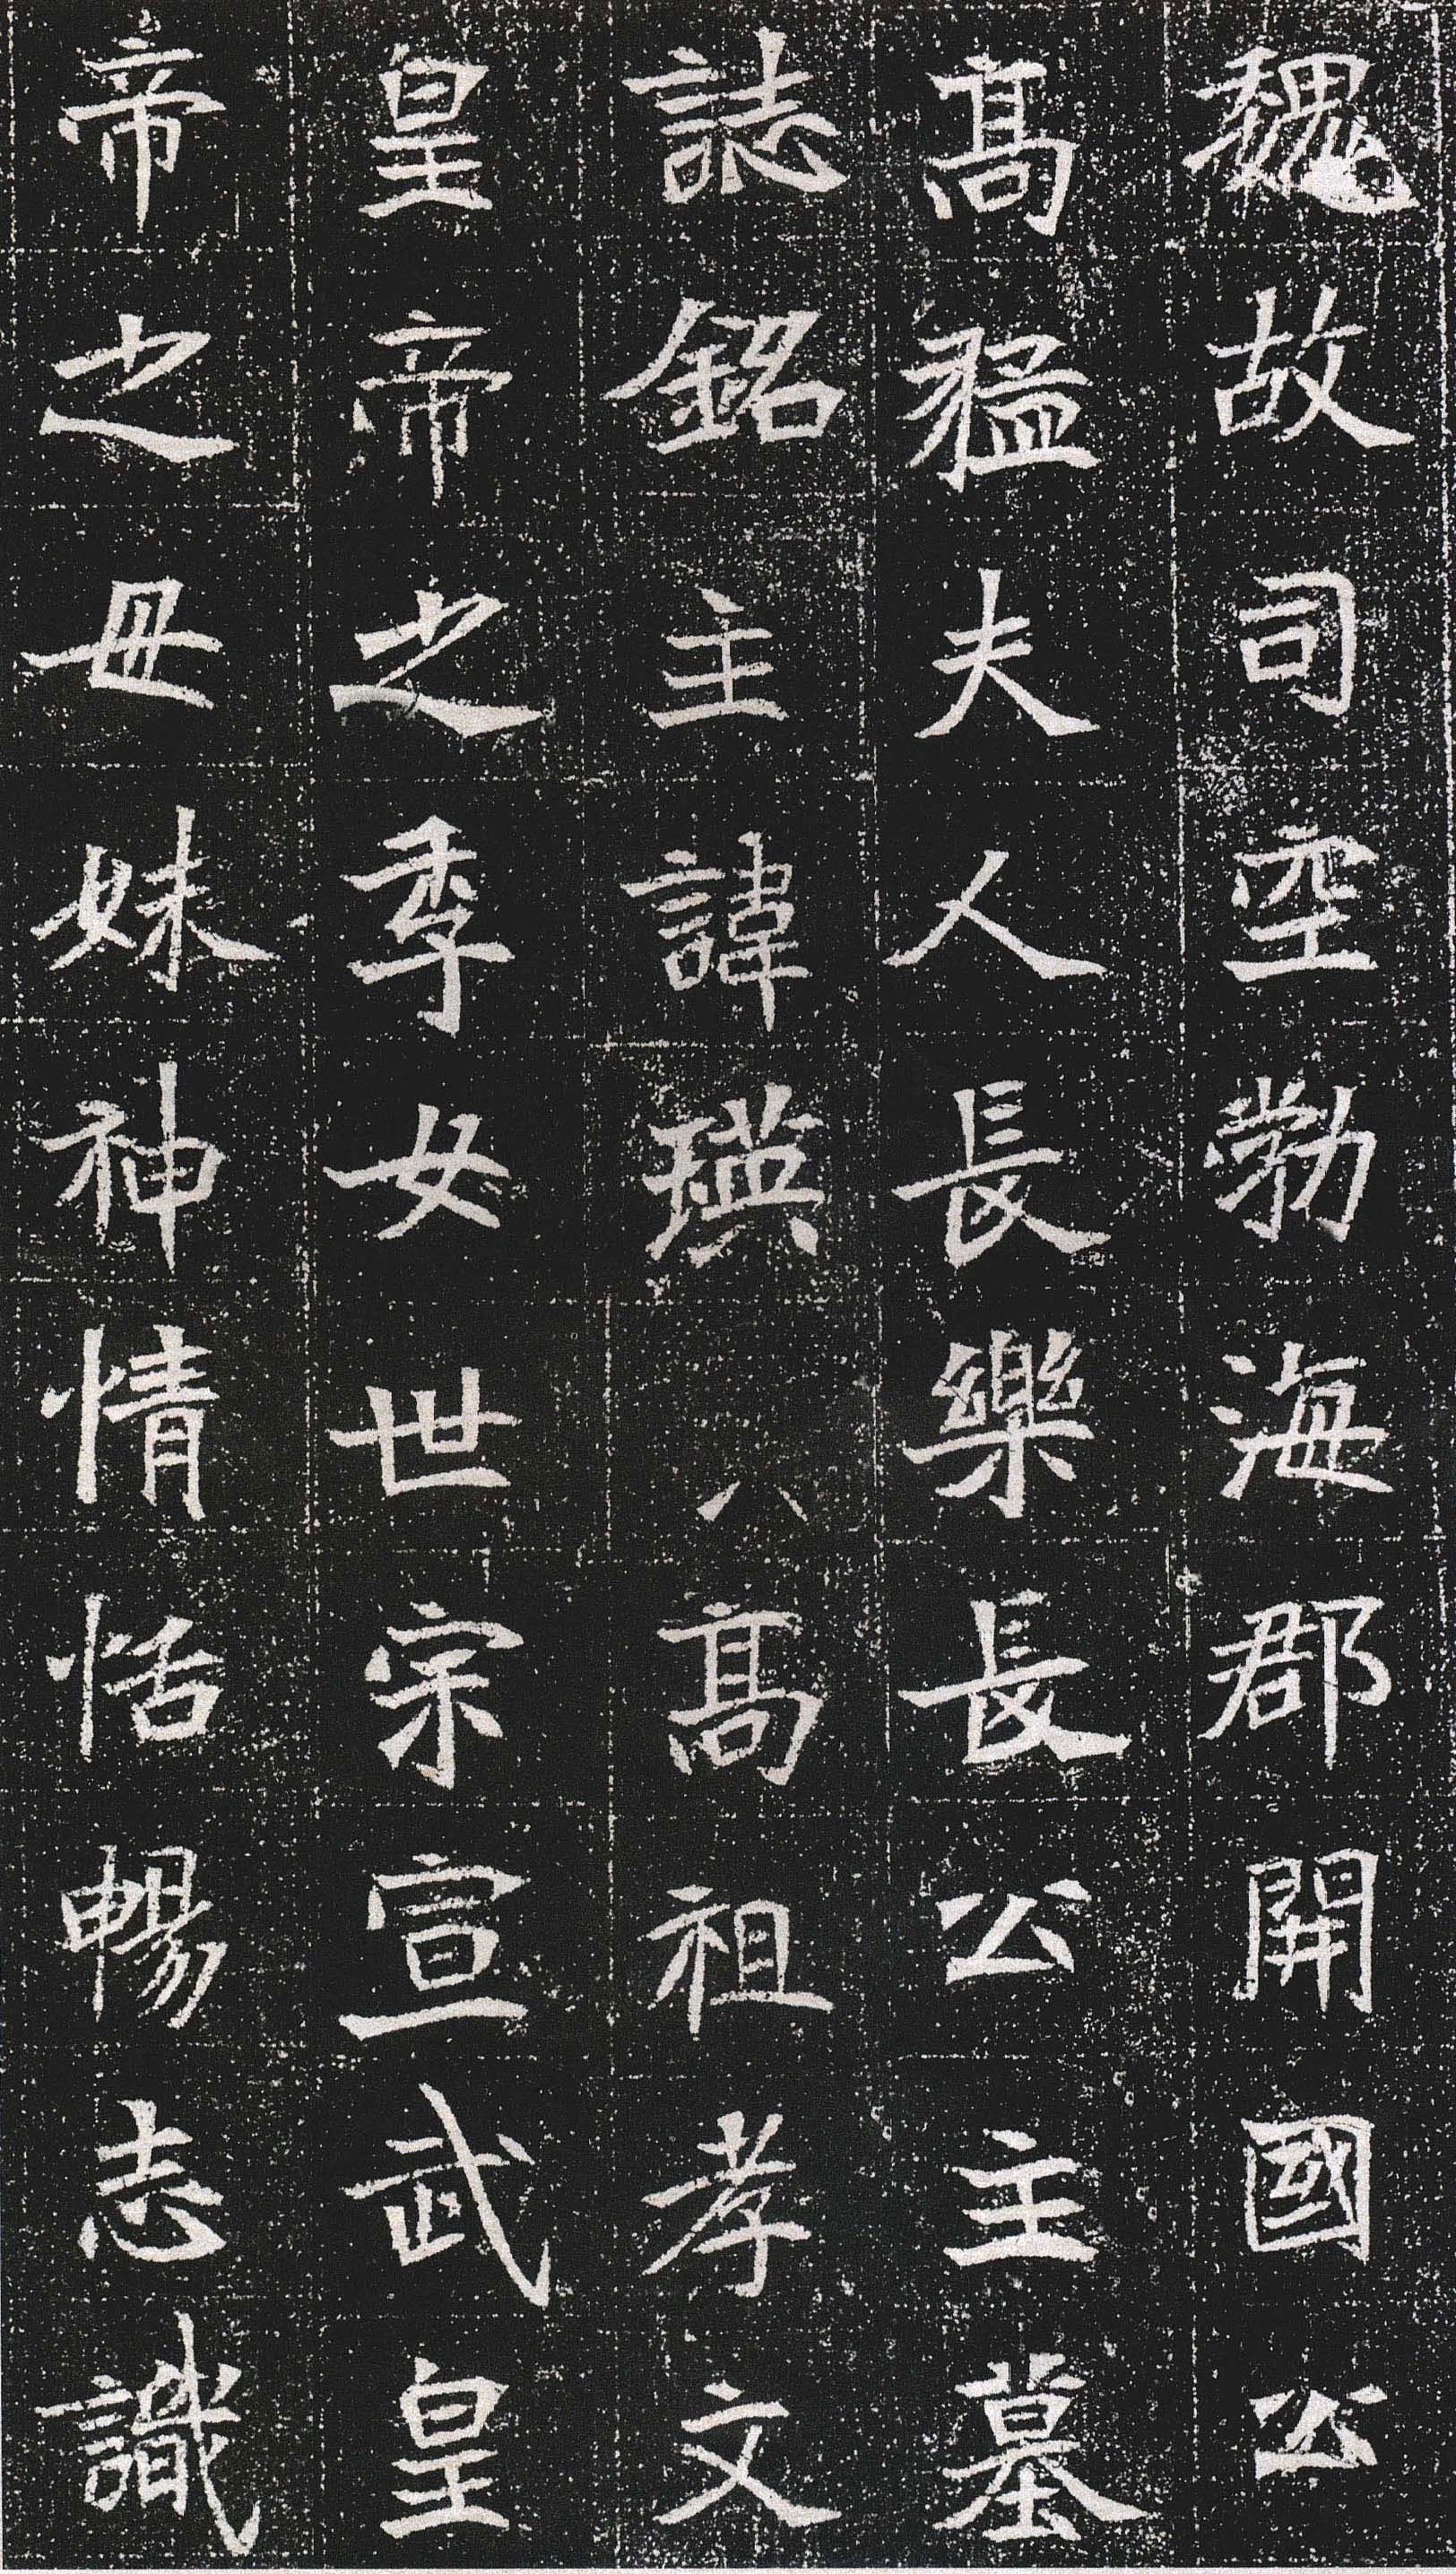 魏故司空勃海郡開國公
髙猛夫人長樂長公主墓
誌銘主諱瑛八髙祖孝文
皇帝之季女世宗宣武皇
帝之母妹神情恬暢志識